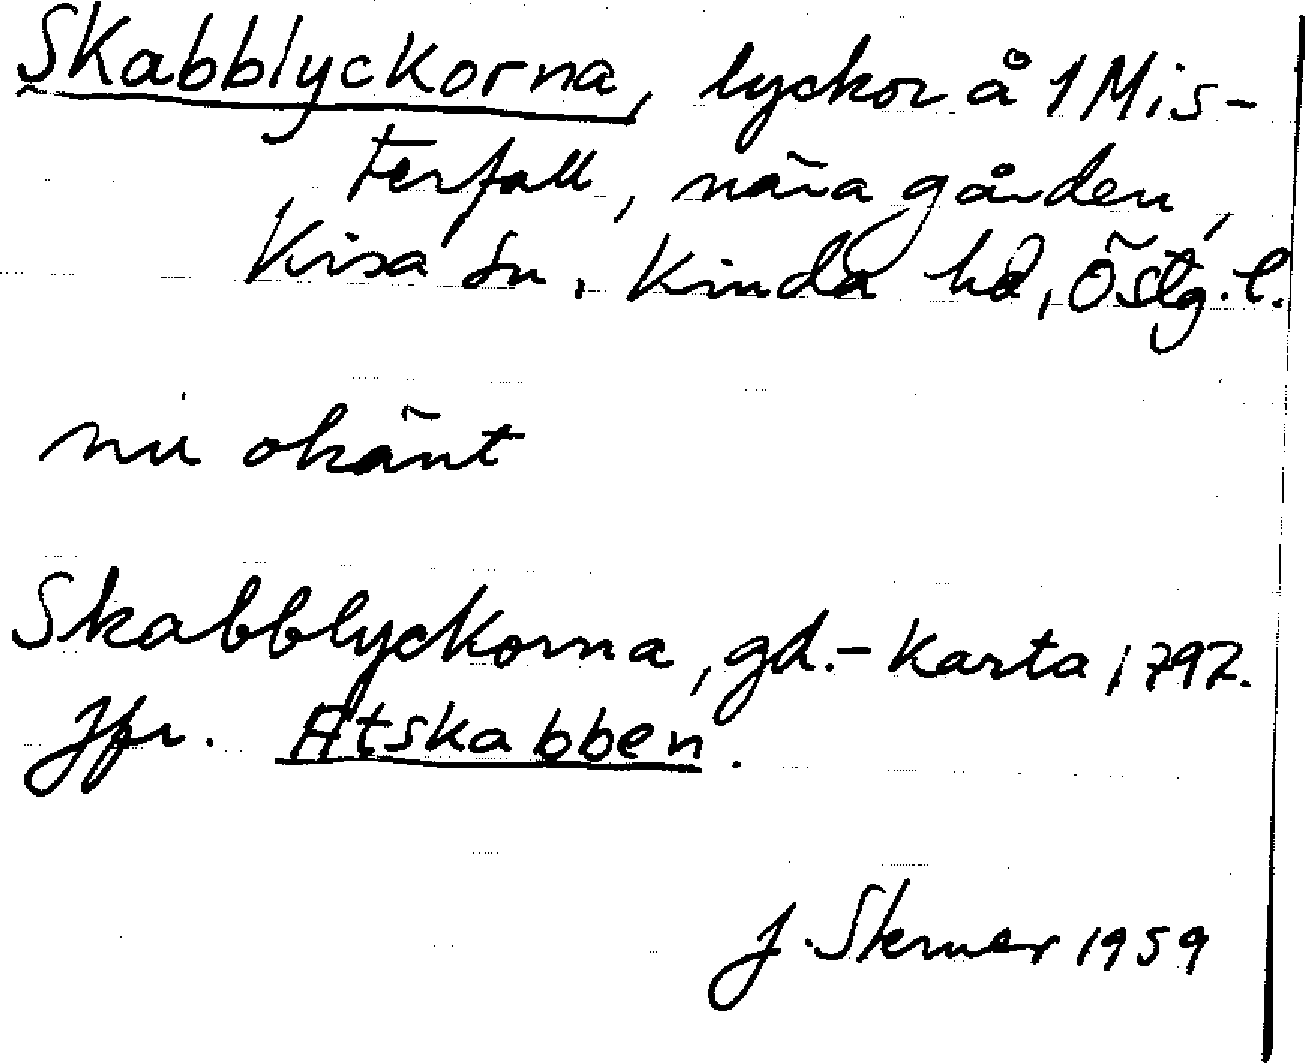 Skabblyckorna, lyckor å 1 Mis-
terfall, nära gården,
Kisa sn, Kinda hd, Östg. l.
nu okänt
Skabblyckorna, gd.- karta 1792.
Jfr. Ätskabben.
J. Sterner 1959